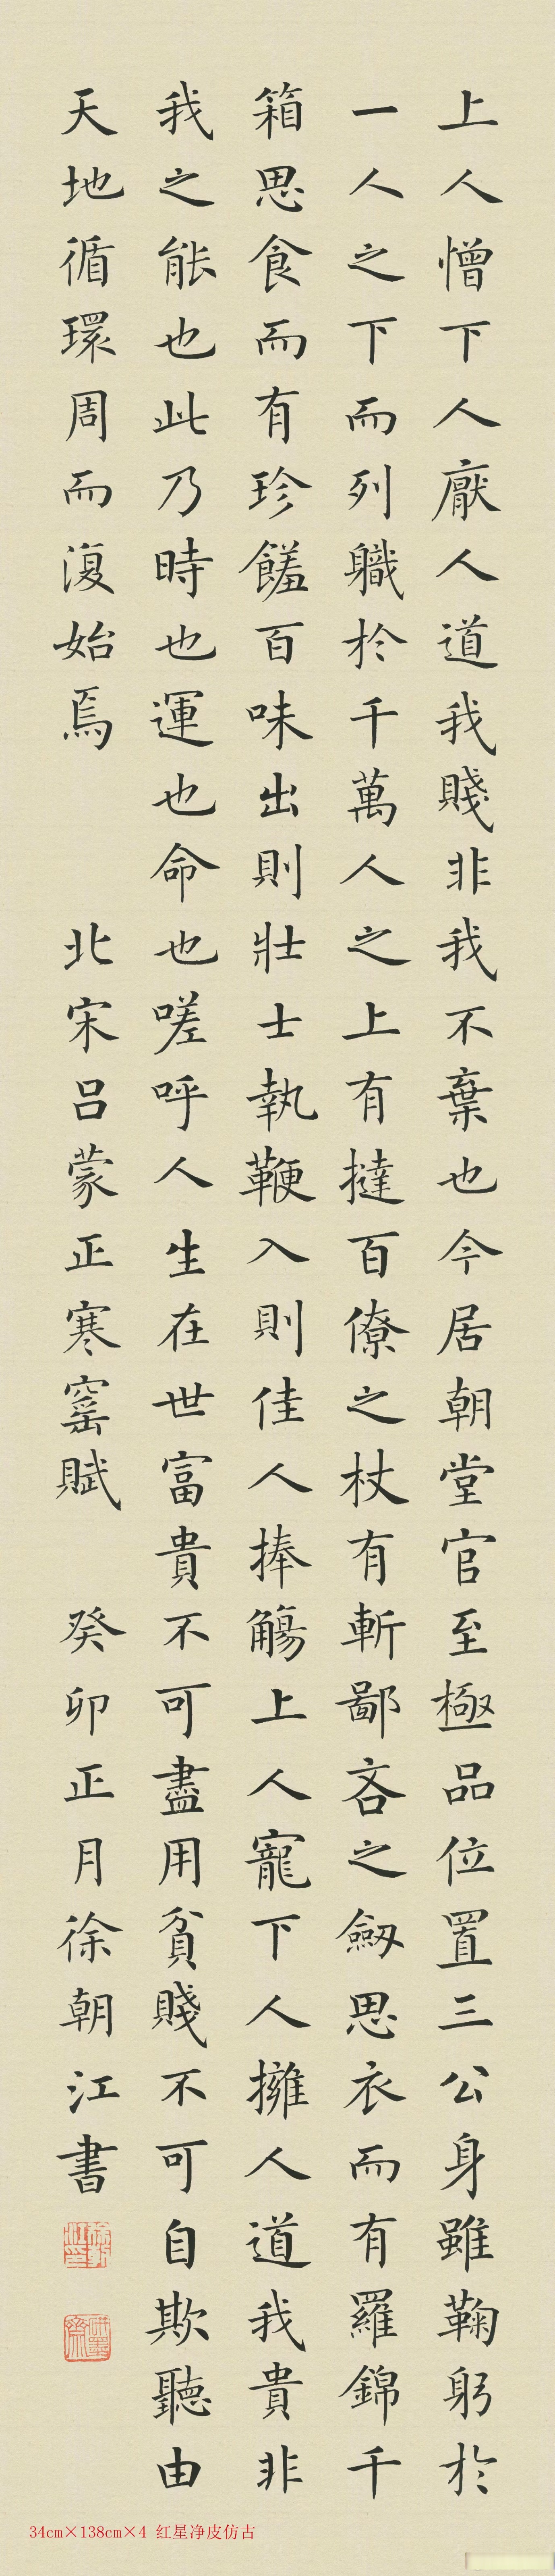 上人憎下人厭人道我賤非我不棄也今居朝堂官至極品位置三公身雖鞠躬於
一人之下而列職於千萬人之上有撻百僚之杖有斬鄙吝之劔思衣而有羅錦千
箱思食而有珍饈百味出則壯士執鞭入則佳人捧觴上人寵下人擁人道我貴非
我之能也此乃時也運也命也嗟呼人生在世富貴不可盡用貧賤不可自欺聽由
天地循環周而復始焉 北宋呂蒙正寒窰賦 癸卯正月徐朝江書
34cm×138cm×4 红星净皮仿古